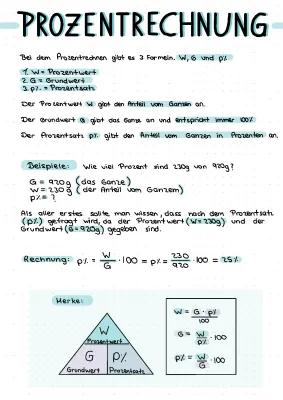 PROZENTRECHNUNG
Bei dem Prozentrechnen gibt es 3 Formeln. W, G und p%
1. W = Prozentwert
2. G = Grundwert
3. p% = Prozentsatz
Der Prozentwert W gibt den Anteil vom Ganzen an.
Der Grundwert G gibt das Ganze an und entspricht immer 100%
Der Prozentsatz p% gibt den Anteil vom Ganzen in Prozenten an.
Beispiele: Wie viel Prozent sind 230g von 920g?
G = 920g (das Ganze)
W = 230g (der Anteil vom Ganzem)
p% = ?
Als aller erstes sollte man wissen, dass nach dem Prozentsatz
(p%) gefragt wird, da der Prozentwert (W=230g) und der
Grundwert (G=920g) gegeben sind.
Rechnung: p% = W/G · 100 = p% = 230/920 · 100 = 25%
Merke:
W
Prozentwert
G p%
Grundwert Prozentsatz
W = G · p% / 100
G = W / p% · 100
p% = W / G · 100